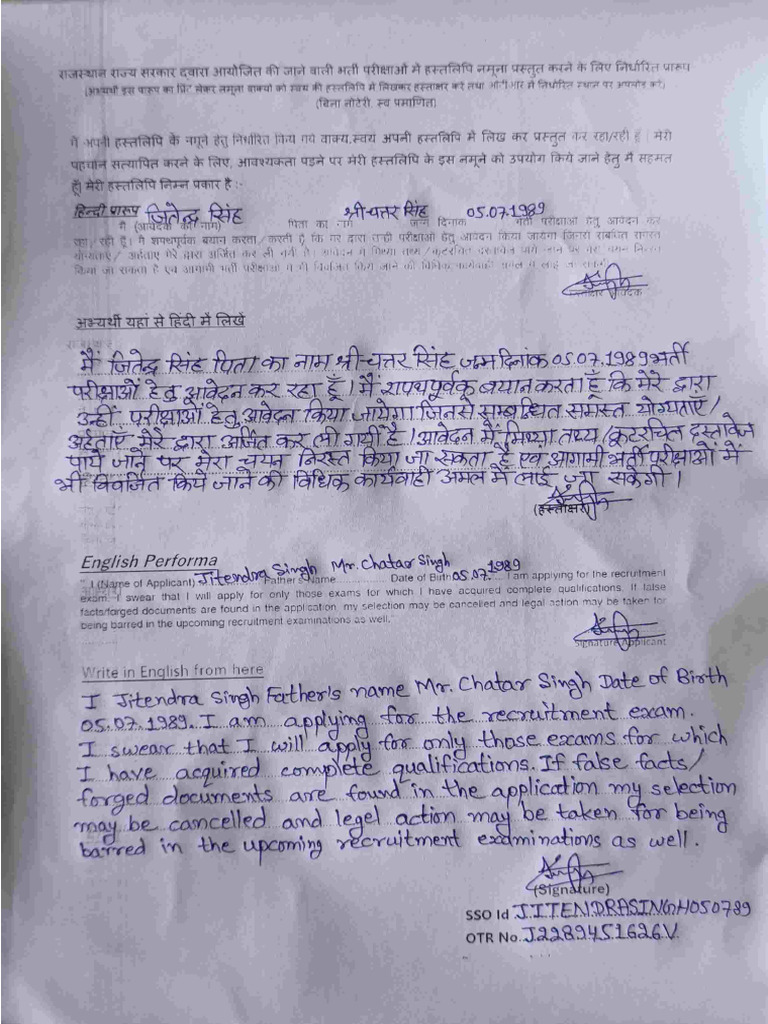 राजस्थान राज्य सरकार दवारा आयोजित की जाने वाली भर्ती परीक्षाओं में हस्तलिपि नमूना प्रस्तुत करने के लिए निर्धारित प्रारूप
(अभ्यर्थी इस प्रारूप का प्रिंट लेकर नमूना वाक्यों को स्वयं की हस्तलिपि में लिखकर हस्ताक्षर करें तथा ओटीआर में निर्धारित स्थान पर अपलोड करें)
(बिना नोटेरी, स्व प्रमाणित)
मैं अपनी हस्तलिपि के नमूने हेतु निर्धारित किय गये वाक्य,स्वयं अपनी हस्तलिपि में लिख कर प्रस्तुत कर रहा/रही हूँ। मेरी
पहचान सत्यापित करने के लिए, आवश्यकता पड़ने पर मेरी हस्तलिपि के इस नमूने को उपयोग किये जाने हेतु मैं सहमत
हूँ। मेरी हस्तलिपि निम्न प्रकार है :-
हिन्दी प्रारूप जितेन्द्र सिंह श्री चत्तर सिंह 05.07.1989
मैं (आवेदक का नाम) पिता का नाम जन्म दिनांक भर्ती परीक्षाओं हेतु आवेदन कर
रहा/ रही हूँ। मैं शपथपूर्वक बयान करता/ करती हूँ कि मेरे द्वारा उन्हीं परीक्षाओं हेतु आवेदन किया जायेगा जिनसे संबंधित समस्त
योग्यताएं/ अर्हताएं मेरे द्वारा अर्जित कर ली गयी है। आवेदन में मिथ्या तथ्य/ कूटरचित दस्तावेज पाये जाने पर मेरा चयन निरस्त
किया जा सकता है एवं आगामी भर्ती परीक्षाओं में भी विवर्जित किये जाने की विधिक कार्यवाही अमल में लाई जा सकेगी
अभ्यर्थी यहां से हिंदी में लिखें
मैं जितेन्द्र सिंह पिता का नाम श्री चत्तर सिंह जन्म दिनांक 05.07.1989 भर्ती
परीक्षाओं हेतु आवेदन कर रहा हूँ। मैं शपथपूर्वक बयान करता हूँ कि मेरे द्वारा
उन्हीं परीक्षाओं हेतु आवेदन किया जायेगा जिनसे सम्बन्धित समस्त योग्यताएँ/
अर्हताएँ मेरे द्वारा अर्जित कर ली गयी है। आवेदन में मिथ्या तथ्य/कूटरचित दस्तावेज
पाये जाने पर मेरा चयन निरस्त किया जा सकता है एवं आगामी भर्ती परीक्षाओं में
भी विवर्जित किये जाने की विधिक कार्यवाही अमल में लाई जा सकेगी।
(हस्ताक्षर)
English Performa
I (Name of Applicant) Jitendra Singh Father's Name Mr. Chatar Singh Date of Birth 05.07.1989 I am applying for the recruitment
exam. I swear that I will apply for only those exams for which I have acquired complete qualifications. If false
facts/forged documents are found in the application, my selection may be cancelled and legal action may be taken for
being barred in the upcoming recruitment examinations as well.
Signature Applicant
Write in English from here
I Jitendra Singh Father's name Mr. Chatar Singh Date of Birth
05.07.1989. I am applying for the recruitment exam.
I swear that I will apply for only those exams for which
I have acquired complete qualifications. If false facts/
forged documents are found in the application my selection
may be cancelled and legel action may be taken for being
barred in the upcoming recruitment examinations as well.
(Signature)
SSO Id JITENDRASINGH050789
OTR No. J2289451626V